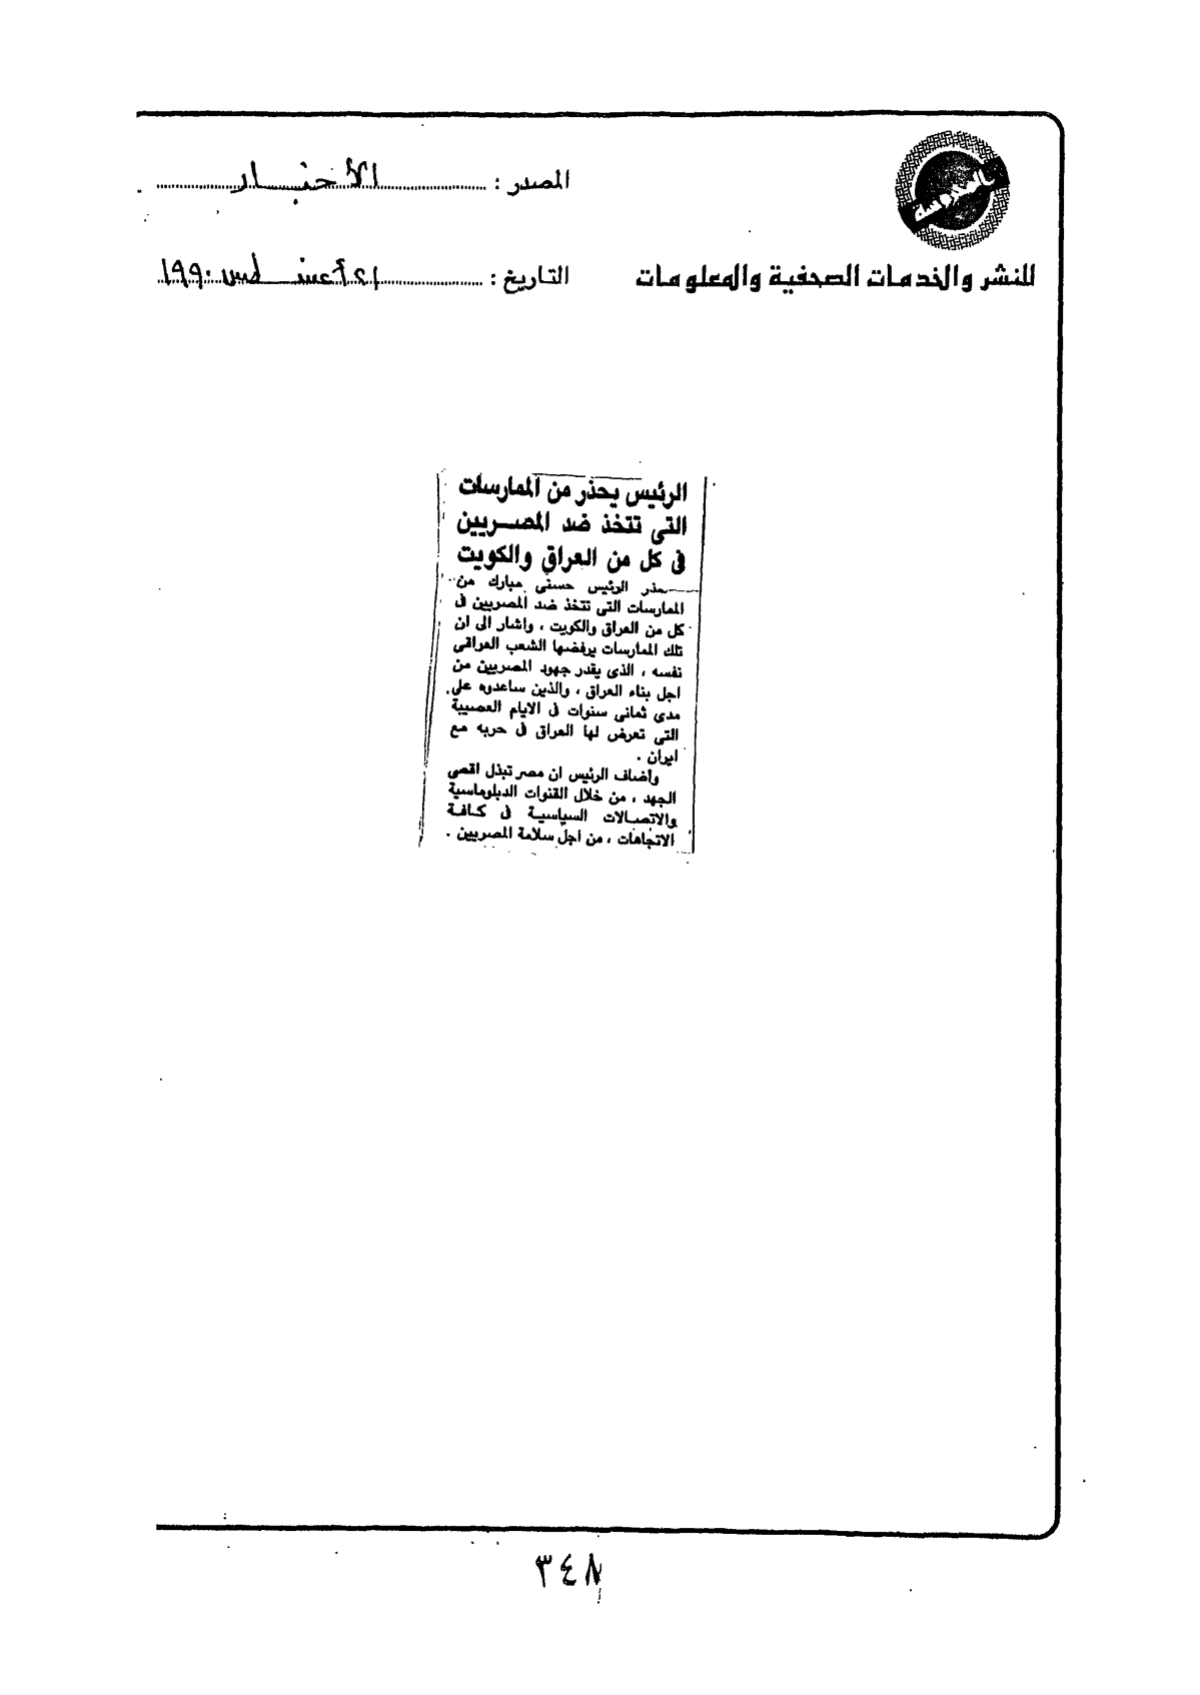 المصدر : الأخبار
للنشر والخدمات الصحفية والمعلومات
التاريخ : ٢١ أغسطس ١٩٩٠
الرئيس يحذر من الممارسات
التى تتخذ ضد المصريين
فى كل من العراق والكويت
حذر الرئيس حسنى مبارك من
الممارسات التى تتخذ ضد المصريين فى
كل من العراق والكويت ، واشار الى ان
تلك الممارسات يرفضها الشعب العراقى
نفسه ، الذى يقدر جهود المصريين من
اجل بناء العراق ، والذين ساعدوه على
مدى ثمانى سنوات فى الايام العصيبة
التى تعرض لها العراق فى حربه مع
ايران .
وأضاف الرئيس ان مصر تبذل اقصى
الجهد ، من خلال القنوات الدبلوماسية
والاتصالات السياسية فى كافة
الاتجاهات ، من اجل سلامة المصريين .
٣٤٨